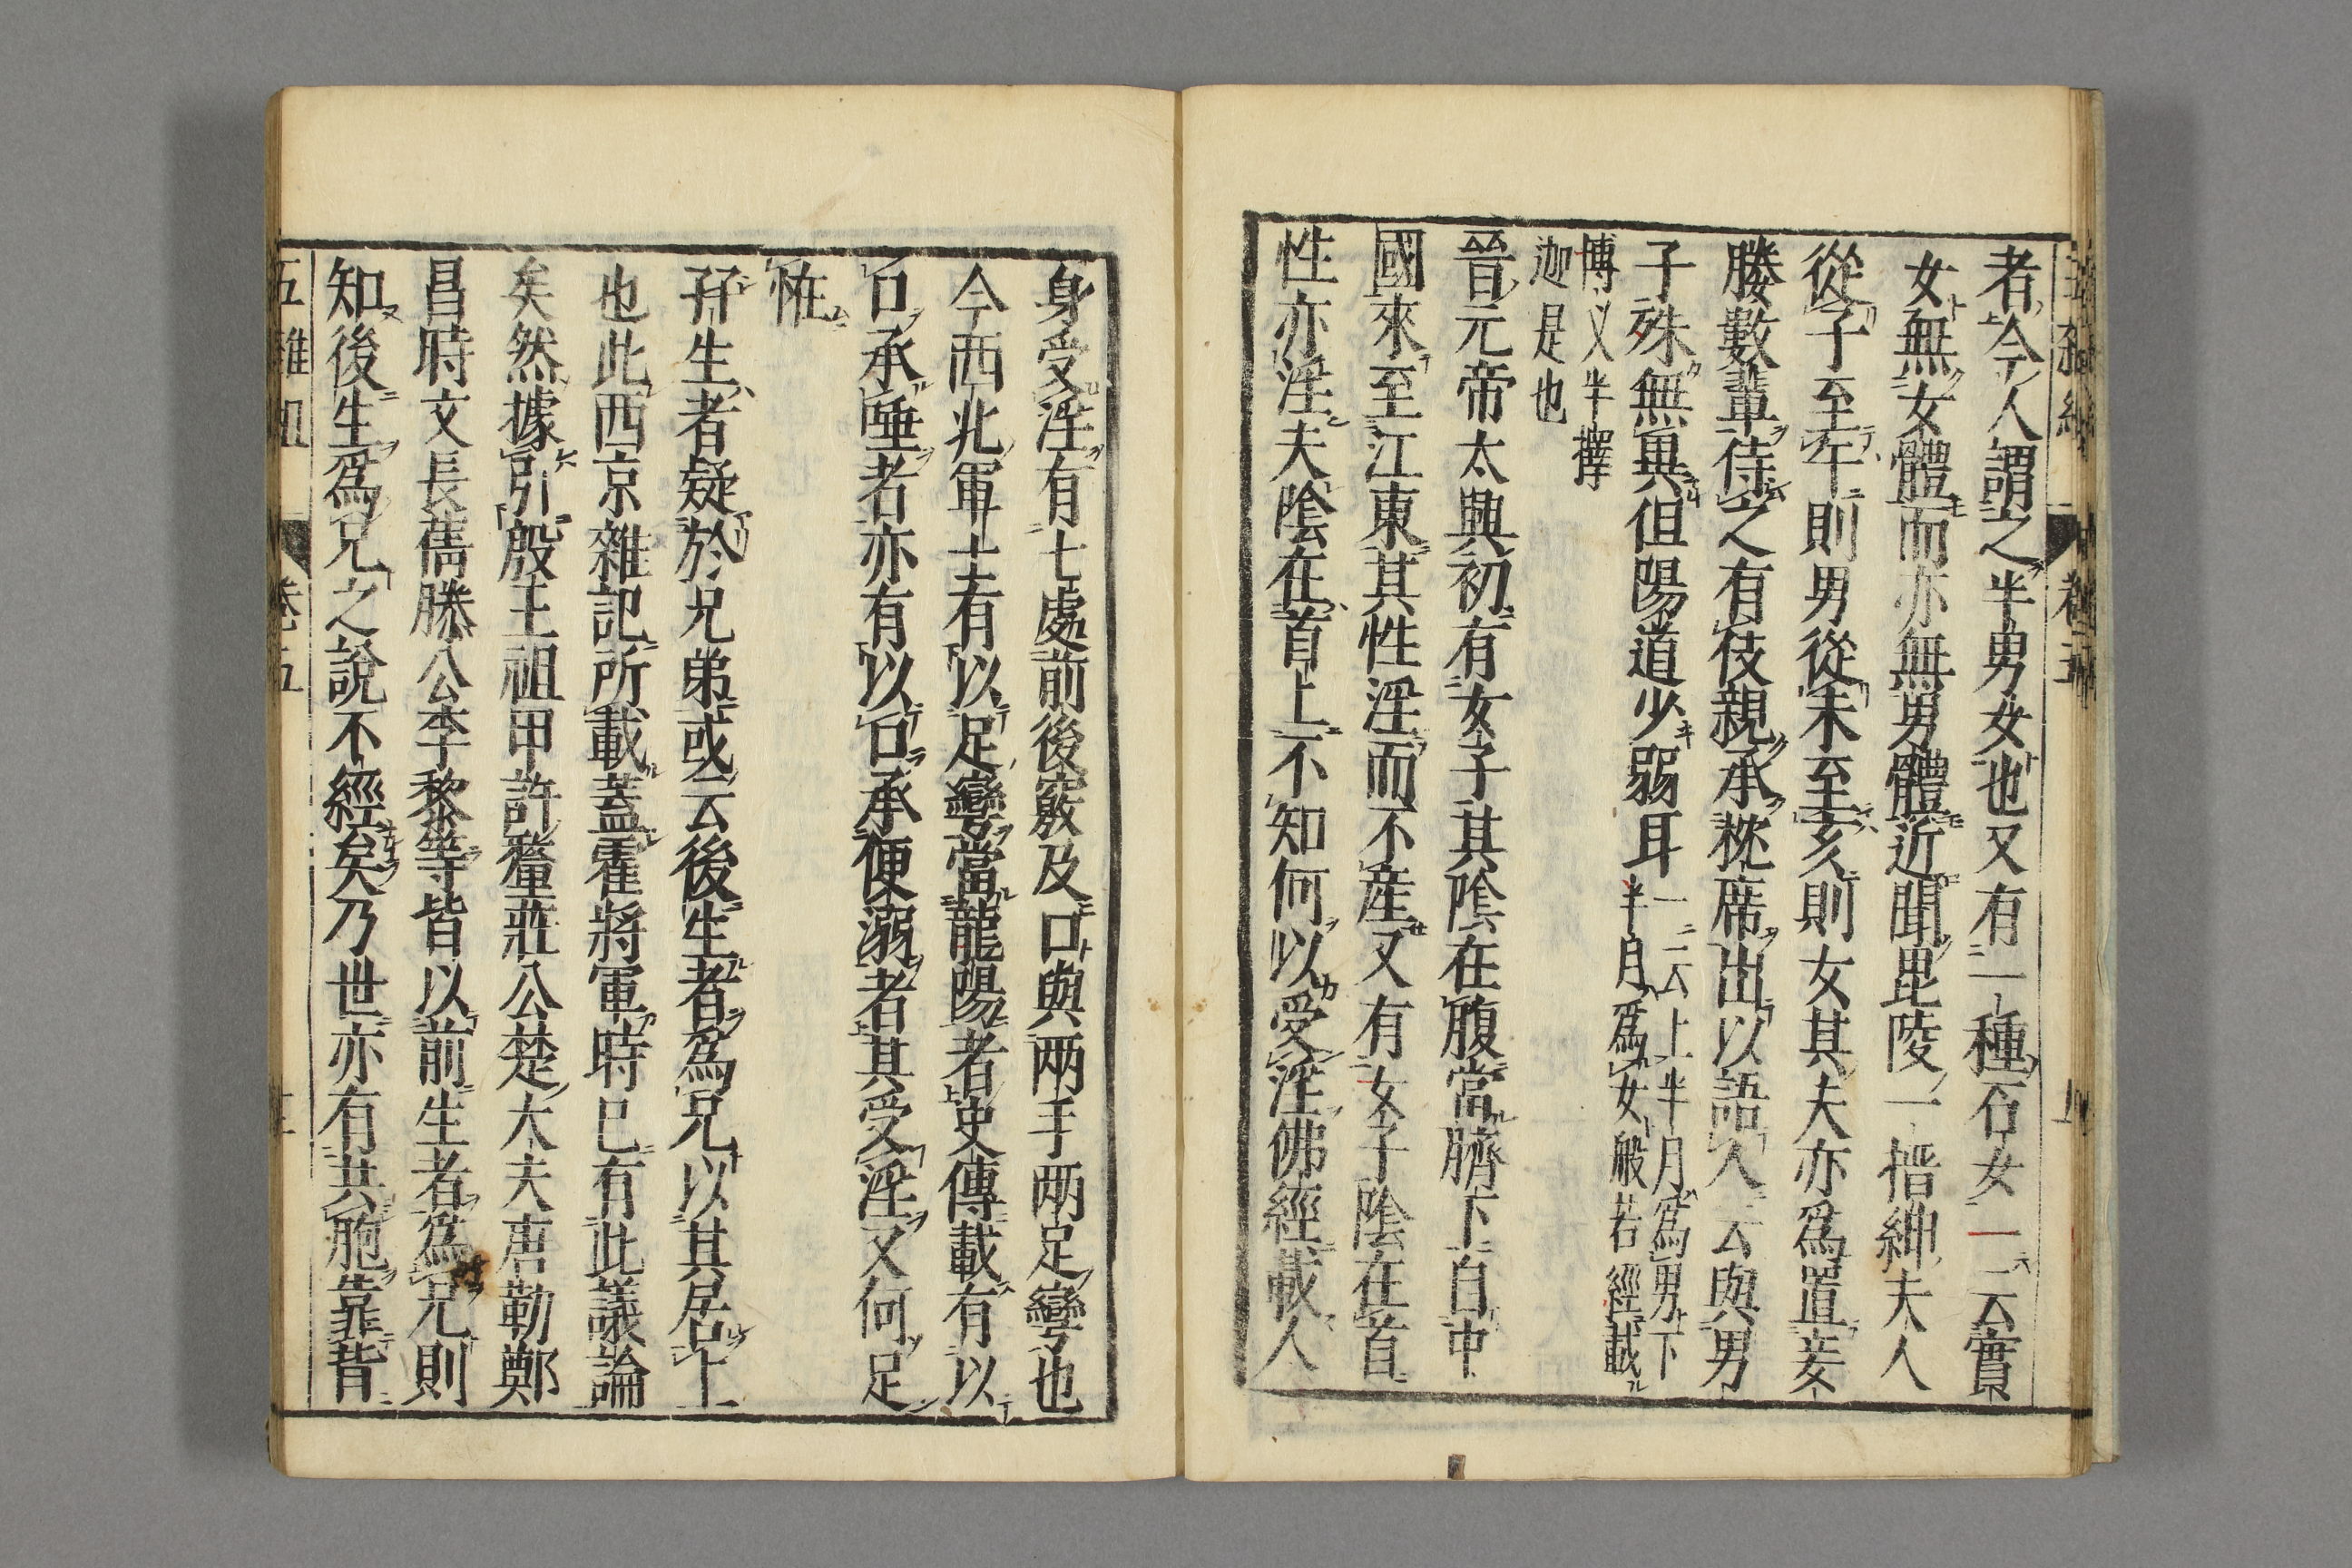 者今人謂之半男女也又有一種石女一云實
女無女體而亦無男體近聞毘陵一搢紳夫人
從子至午則男從未至亥則女其夫亦爲置妾
媵數輩侍之有伎親承枕席出以語人云與男
子殊無異但陽道少弱耳一云上半月爲男下
半月爲女般若經載
博叉半擇
迦是也
晉元帝太興初有女子其陰在腹當臍下自中
國來至江東其性淫而不產又有女子陰在首
性亦淫夫陰在首上不知何以受淫佛經載人
身受淫有七處前後竅及口與兩手兩足彎也
今西北軍士有以足彎當龍陽者史傳載有以
口承唾者亦有以口承便溺者其受淫又何足
恠
孖生者疑於兄弟或云後生者爲兄以其居上
也此西京雜記所載蓋霍將軍時已有此議論
矣然據引殷王祖甲許釐莊公楚大夫唐勒鄭
昌時文長蒨滕公李黎等皆以前生者爲兄則
知後生爲兄之說不經矣乃世亦有共胞靠背
五雜俎 卷五